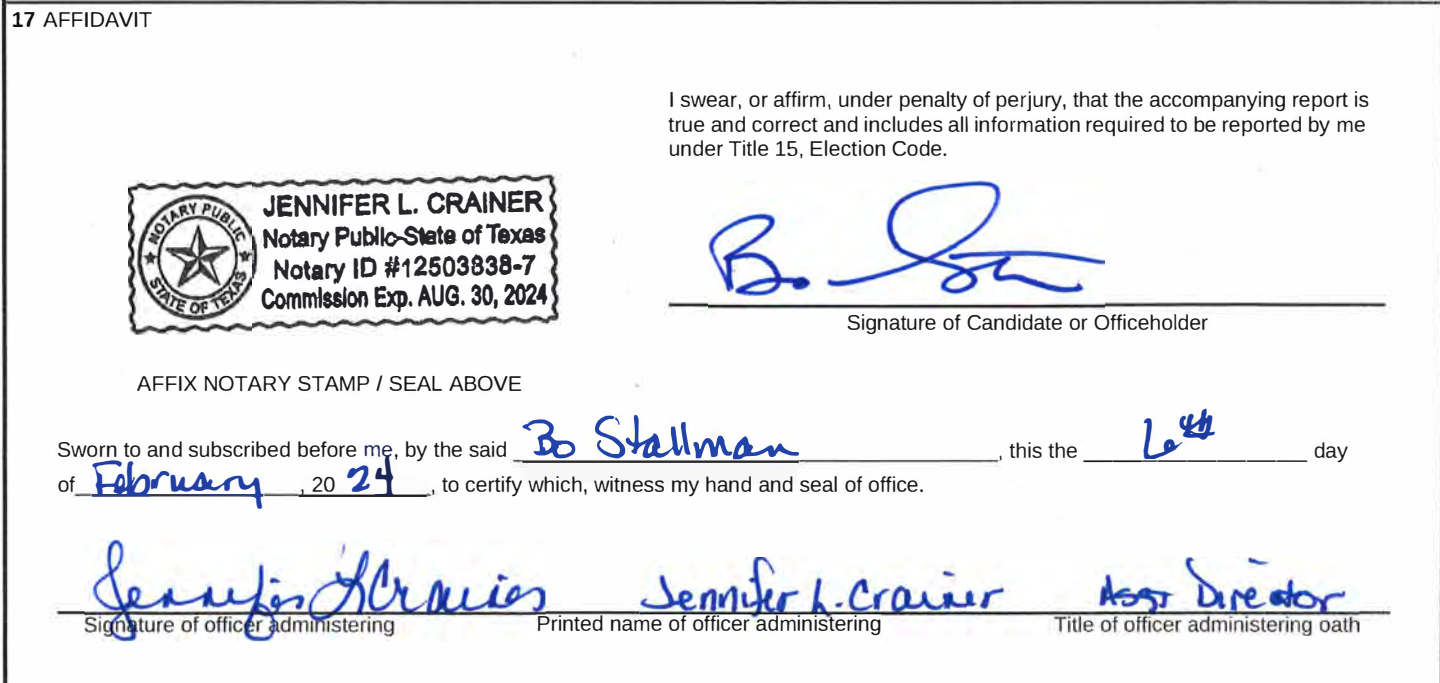 17 AFFIDAVIT
I swear, or affirm, under penalty of perjury, that the accompanying report is
true and correct and includes all information required to be reported by me
under Title 15, Election Code.
NOTARY PUBLIC
STATE OF TEXAS
JENNIFER L. CRAINER
Notary Public-State of Texas
Notary ID #12503838-7
Commission Exp. AUG. 30, 2024
Bo
Signature of Candidate or Officeholder
AFFIX NOTARY STAMP / SEAL ABOVE
Sworn to and subscribed before me, by the said Bo Stallman, this the 6th day
of February, 20 24, to certify which, witness my hand and seal of office.
Jennifer L Crainer Jennifer L. Crainer Asst Director
Signature of officer administering Printed name of officer administering Title of officer administering oath